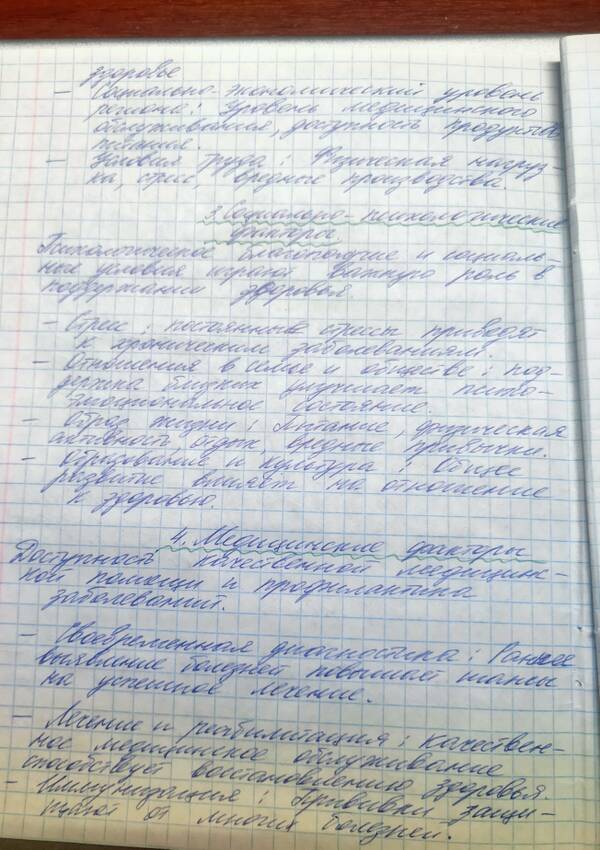 здоровье
– Социально-экономический уровень
региона: Уровень медицинского
обслуживания, доступность продуктов
питания.
– Условия труда: Физическая нагруз-
ка, стрес, вредные производства.
3. Социально-психологические
факторы.
Психологическое благополучие и социаль-
ные условия играют важную роль в
поддержании здоровья.
– Стресс: постоянные стрессы приводят
к хроническим заболеваниям.
– Отношения в семье и обществе: под-
держка близких улучшает психо-
эмоциональное состояние.
– Образ жизни: Питание, физическая
активность отдых, вредные привычки.
– Образование и культура: Общее
развитие влияет на отношение
к здоровью.
4. Медицинские факторы
Доступность качественной медицин-
ской помощи и профилактика
заболеваний.
– Своевременная диагностика: Раннее
выявление болезней повышает шансы
на успешное лечение.
– Лечение и реабилитация: Качествен-
ное медицинское обслуживание
способствует восстановлению здоровья.
– Иммунизация: Прививки защи-
щают от многих болезней.